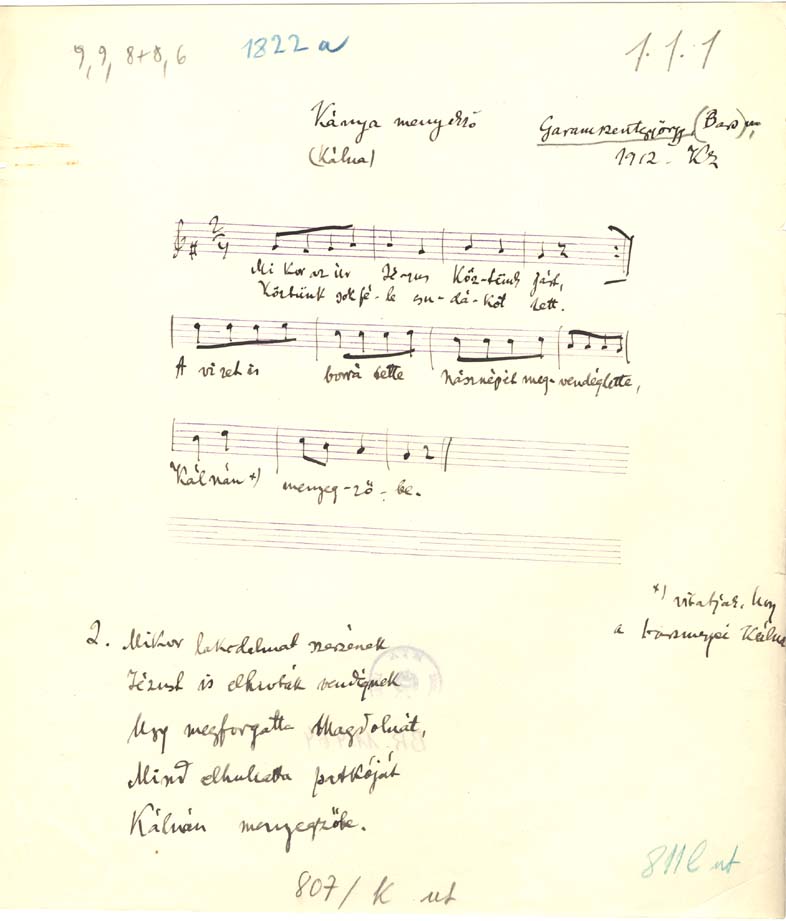 9, 9, 8+8, 6 1822 a 1.1.1
Kánya menyekző Garamszentgyörgy (Bars) m,
(Kálna) 1912. KZ
2/4
Mi kor az úr Jé-zus Köz-tünk járt,
Köztünk sokfé-le csu-dá-kot tett.
A vizet is borrá tette Násznépét meg-vendéglette,
Kálnán *) menyeg-ző-be.
*) vitatják, hogy
a barsmegyei Kálna
2. Mikor lakodalmat szerzének
Jézust is elhívták vendégnek
Ugy megforgatta Magdolnát,
Mind elhulatta patkóját
Kálnán menyegzőbe.
811 l ut
807/K ut